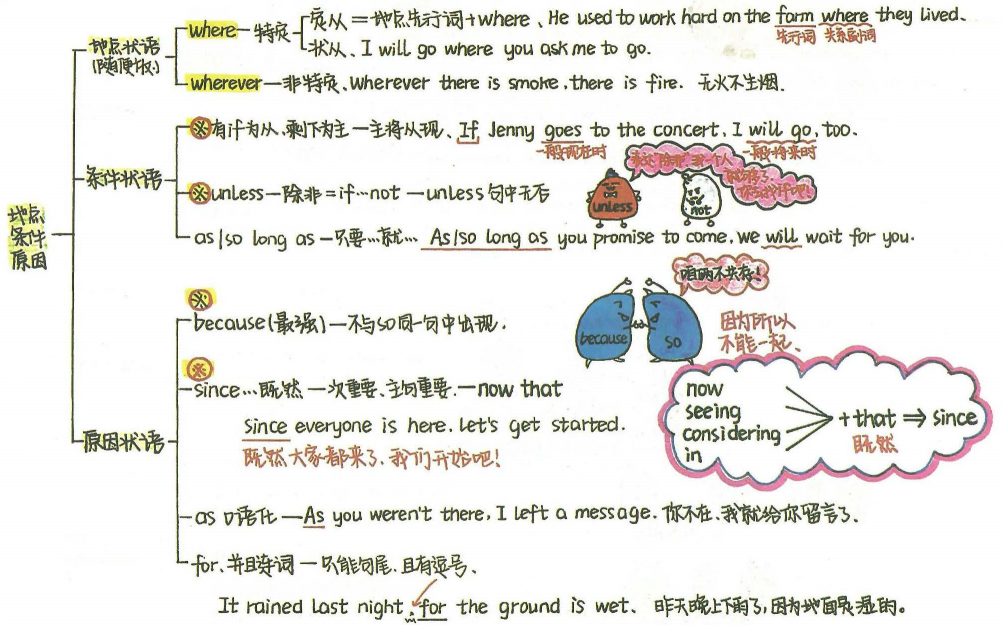 地点
条件
原因
地点状语
(随便放)
where—特定
定从=地点先行词+where、He used to work hard on the farm where they lived.
先行词 关系副词
状从、I will go where you ask me to go.
wherever—非特定、Wherever there is smoke, there is fire. 无火不生烟.
条件状语
※有if为从、剩下为主—主将从现、If Jenny goes to the concert, I will go, too.
一般现在时 一般将来时
※unless—除非=if…not—unless句中无否
unless
not
as/so long as—只要…就… As/so long as you promise to come, we will wait for you.
原因状语
※
because(最强)—不与so同一句中出现.
咱两不共存!
because
so
因为所以
不能一起、
※
since…既然—次重要、主句重要.—now that
Since everyone is here. Let's get started.
既然大家都来了、我们开始吧!
now
seeing
considering
in
+that⇒since
既然
as 口语化—As you weren't there, I left a message. 你不在、我就给你留言了、
for、并且连词—只能句尾、且有逗号、
It rained last night, for the ground is wet、 昨天晚上下雨了,因为地面是湿的。